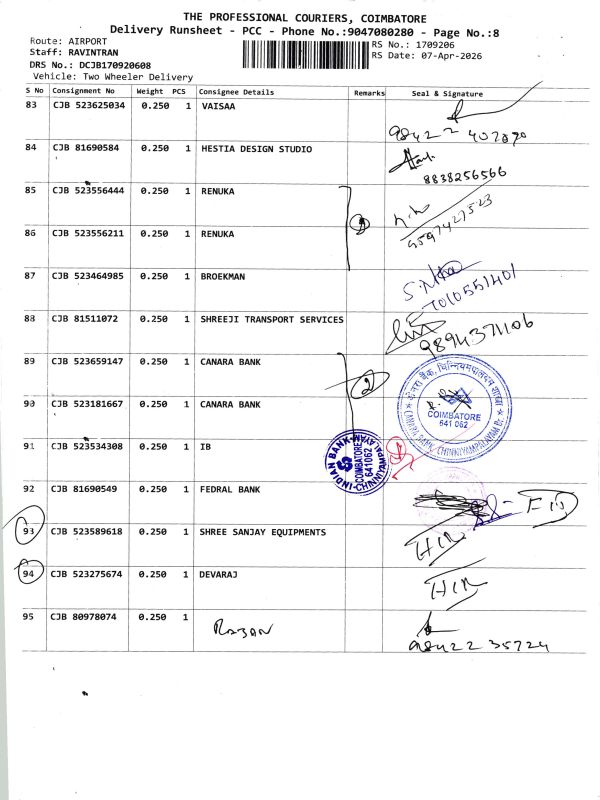 THE PROFESSIONAL COURIERS, COIMBATORE
Delivery Runsheet - PCC - Phone No.:9047080280 - Page No.:8
Route: AIRPORT
Staff: RAVINTRAN
DRS No.: DCJB170920608
Vehicle: Two Wheeler Delivery
RS No.: 1709206
RS Date: 07-Apr-2026
S No Consignment No Weight PCS Consignee Details Remarks Seal & Signature
83 CJB 523625034 0.250 1 VAISAA
84 CJB 81690584 0.250 1 HESTIA DESIGN STUDIO 8838256566
85 CJB 523556444 0.250 1 RENUKA 9597427523
86 CJB 523556211 0.250 1 RENUKA
87 CJB 523464985 0.250 1 BROEKMAN 7010551401
88 CJB 81511072 0.250 1 SHREEJI TRANSPORT SERVICES 9894371106
89 CJB 523659147 0.250 1 CANARA BANK
2
90 CJB 523181667 0.250 1 CANARA BANK
COIMBATORE
641 062
91 CJB 523534308 0.250 1 IB
INDIAN BANK
COIMBATORE
641 062
92 CJB 81690549 0.250 1 FEDRAL BANK
93 CJB 523589618 0.250 1 SHREE SANJAY EQUIPMENTS
94 CJB 523275674 0.250 1 DEVARAJ
95 CJB 80978074 0.250 1 Rajan 98422 35724